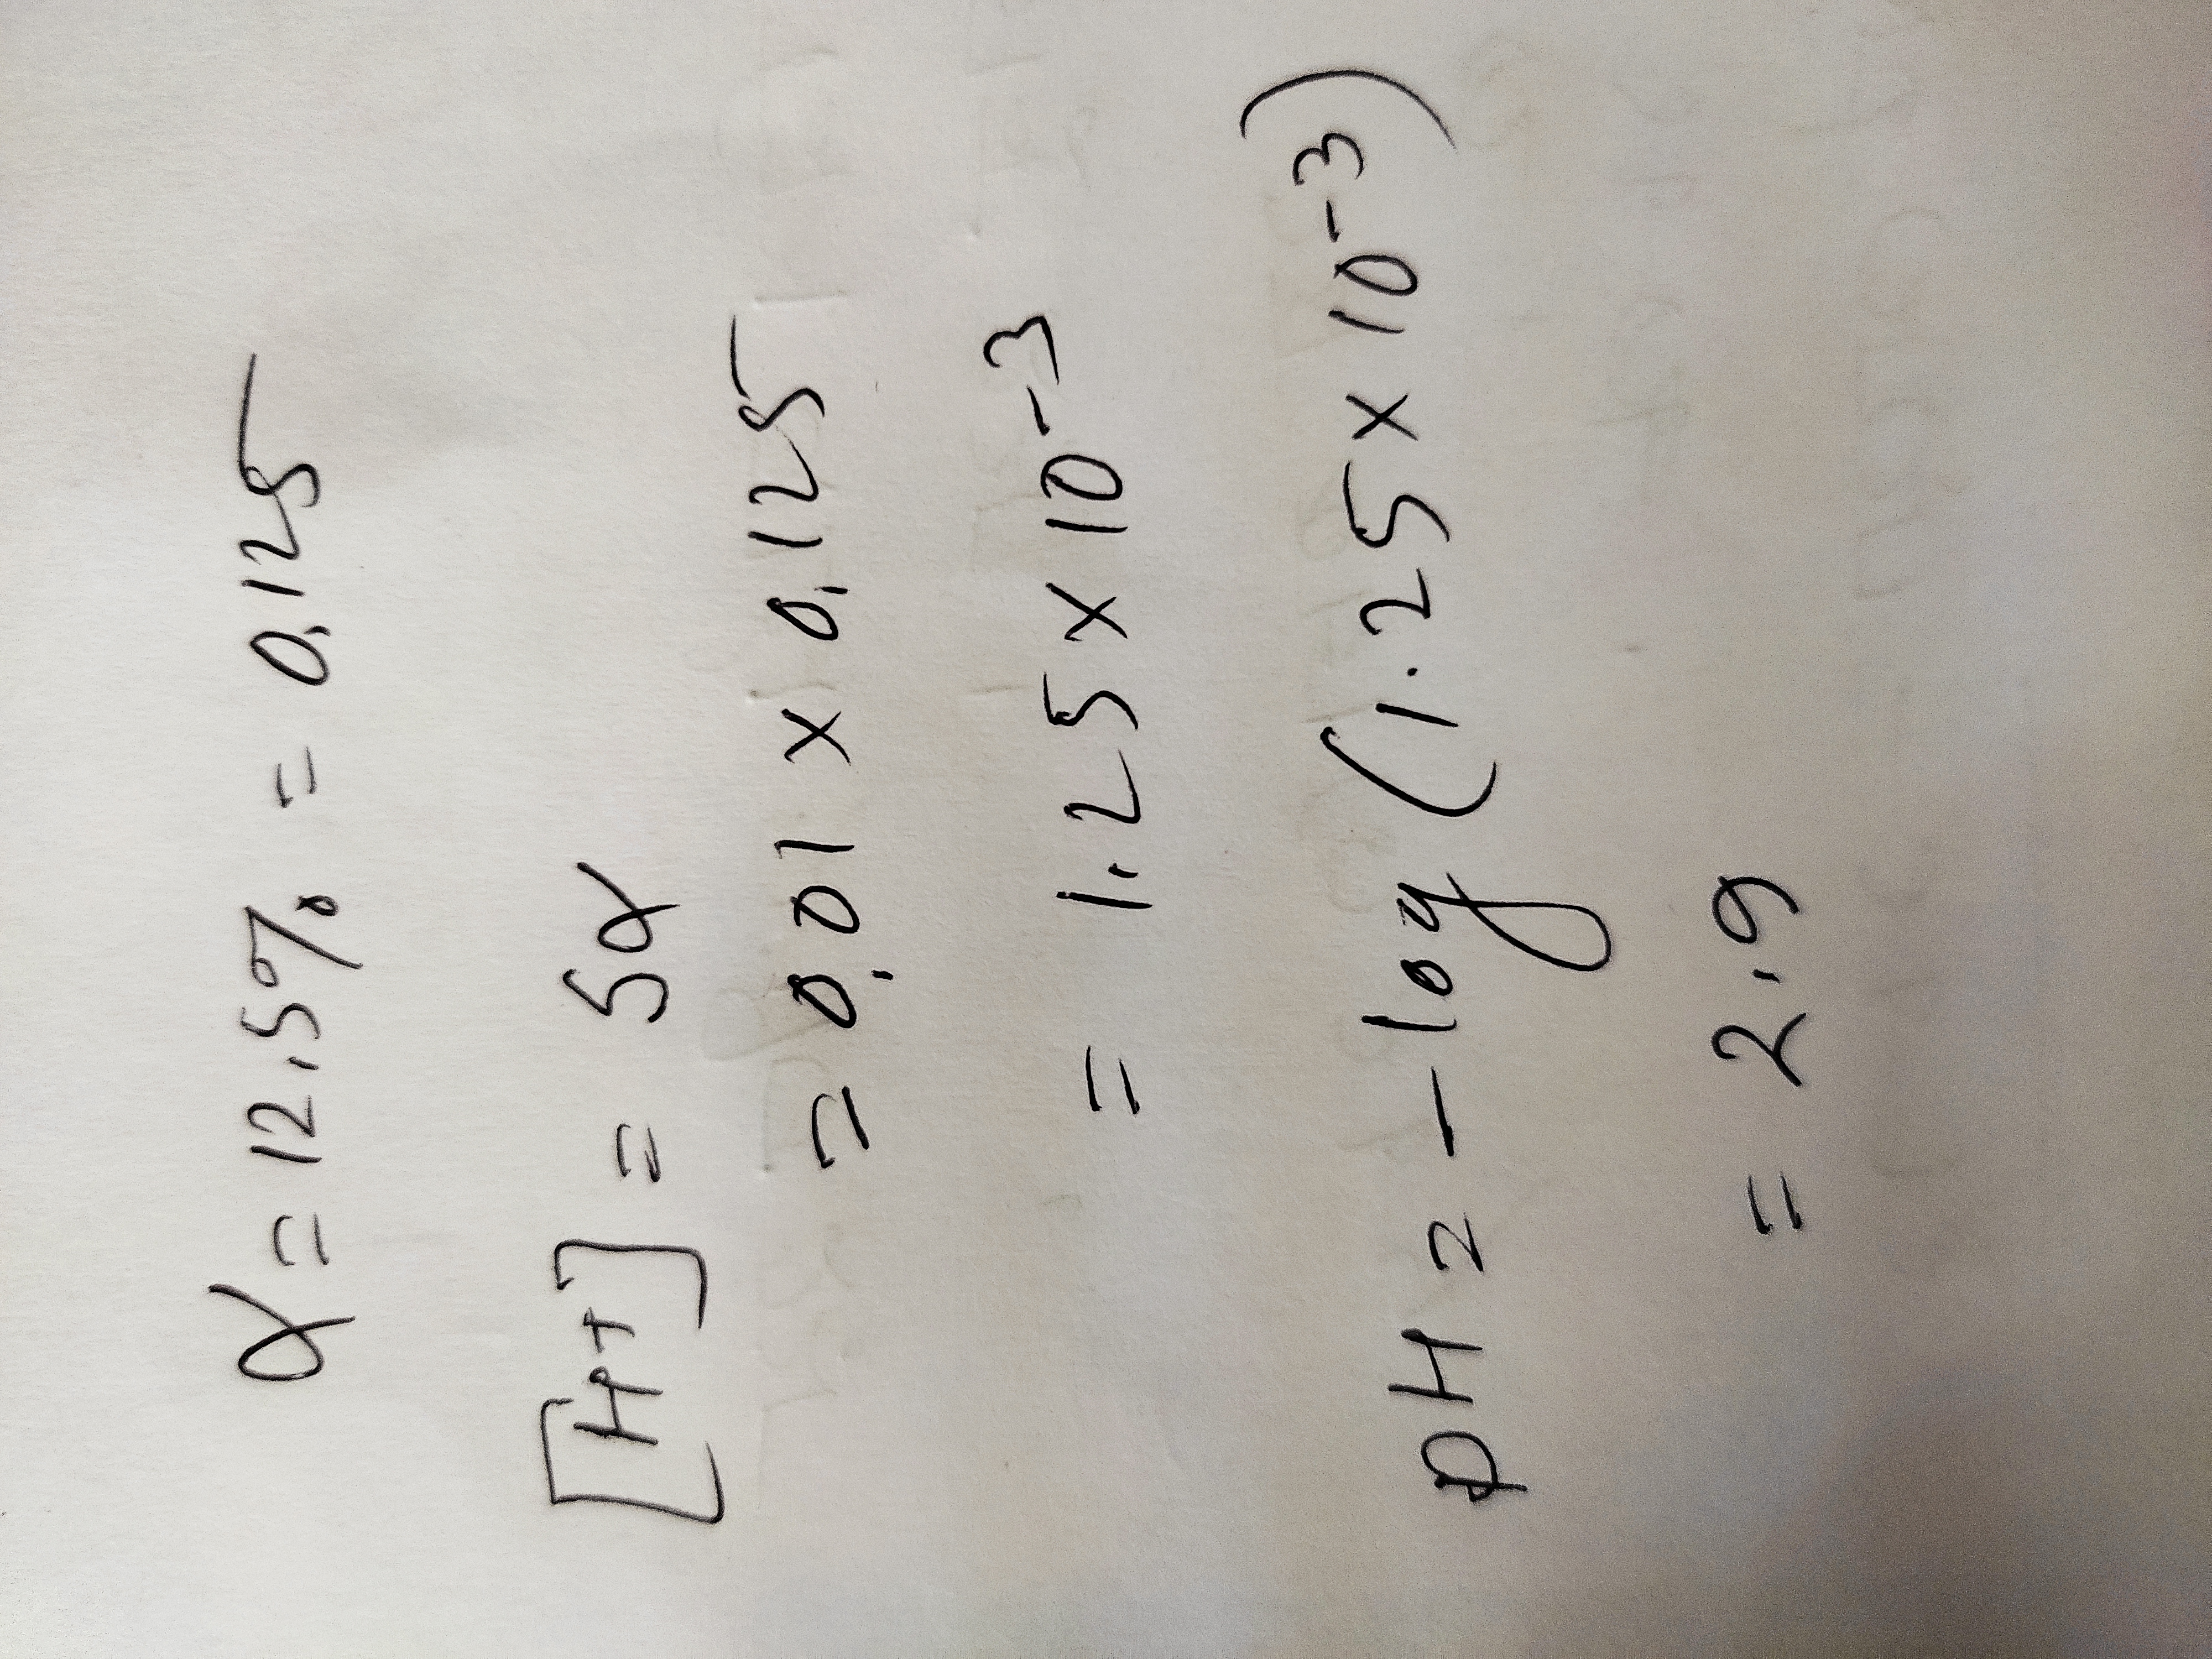 α = 12.5% = 0.125
[H+] = Sα
= 0.01 × 0.125
= 1.25 × 10⁻³
pH = -log (1.25 × 10⁻³)
= 2.9